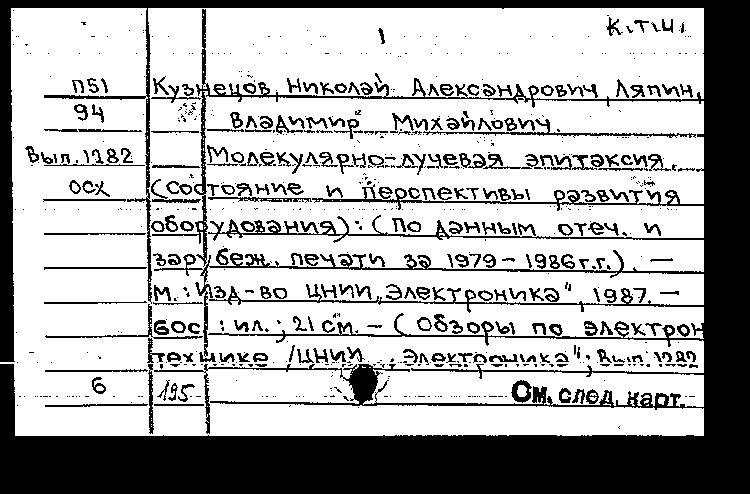 1 К.Т.Ц.
П51 Кузнецов, Николай Александрович, Ляпин,
94 Владимир Михайлович.
Вып.1282 Молекулярно-лучевая эпитаксия.
ОСХ (состояние и перспективы развития
оборудования): (По данным отеч. и
зарубеж. печати за 1979-1986г.г.). —
М.: Изд-во ЦНИИ „Электроника", 1987. —
60с. : ил. ; 21см. — (Обзоры по электрон
технике /ЦНИИ „Электроника"; Вып. 1282
6 195 См. след. карт.